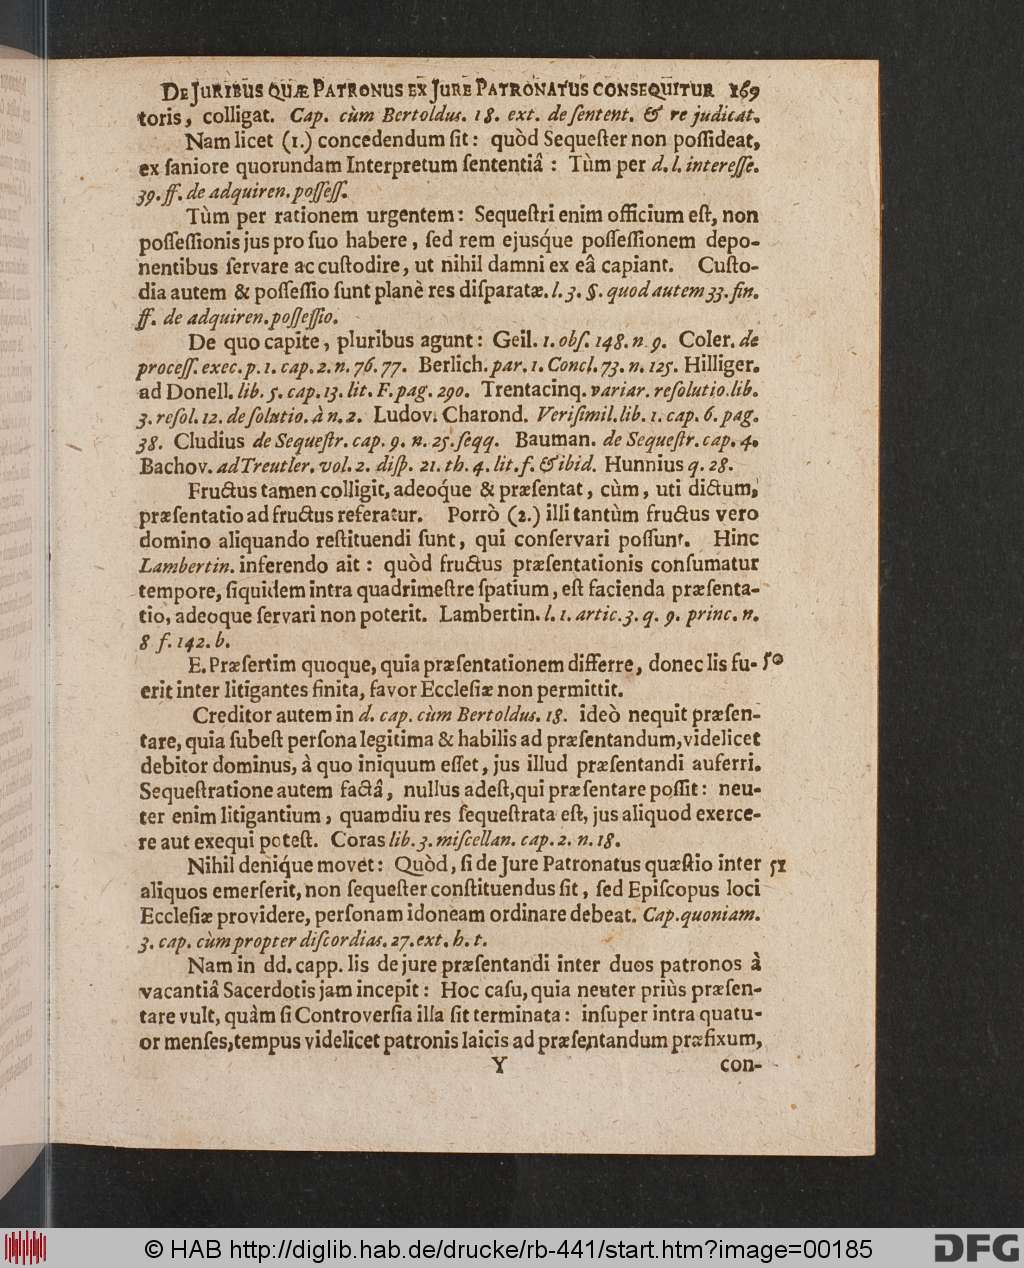 DE JURIBUS QUÆ PATRONUS EX JURE PATRONATUS CONSEQUITUR 169
toris, colligat. Cap. cùm Bertoldus. 18. ext. de ſentent. & re judicat.
Nam licet (1.) concedendum ſit: quòd Sequeſter non poſſideat,
ex ſaniore quorundam Interpretum ſententiâ : Tùm per d. l. intereſſe.
39. ff. de adquiren. poſſeſſ.
Tùm per rationem urgentem: Sequeſtri enim officium eſt, non
poſſeſſionis jus pro ſuo habere, ſed rem ejusq́ue poſſeſſionem depo-
nentibus ſervare ac cuſtodire, ut nihil damni ex eâ capiant. Cuſto-
dia autem & poſſeſſio ſunt planè res diſparatæ. l. 3. §. quod autem 33. fin.
ff. de adquiren. poſſeſſio.
De quo capite, pluribus agunt: Geil. 1. obſ. 148. n. 9. Coler. de
proceſſ. exec. p. 1. cap. 2. n. 76. 77. Berlich. par. 1. Concl. 73. n. 125. Hilliger.
ad Donell. lib. 5. cap. 13. lit. F. pag. 290. Trentacinq. variar. reſolutio. lib.
3. reſol. 12. de ſolutio. à n. 2. Ludov. Charond. Veriſimil. lib. 1. cap. 6. pag.
38. Cludius de Sequeſtr. cap. 9. n. 25. ſeqq. Bauman. de Sequeſtr. cap. 4.
Bachov. ad Treutler. vol. 2. diſp. 21. th. 4. lit. f. & ibid. Hunnius q. 28.
Fructus tamen colligit, adeoq́ue & præſentat, cùm, uti dictum,
præſentatio ad fructus referatur. Porrò (2.) illi tantùm fructus vero
domino aliquando reſtituendi ſunt, qui conſervari poſſunt. Hinc
Lambertin. inferendo ait : quòd fructus præſentationis conſumatur
tempore, ſiquidem intra quadrimeſtre ſpatium, eſt facienda præſenta-
tio, adeoque ſervari non poterit. Lambertin. l. 1. artic. 3. q. 9. princ. n.
8 f. 142. b.
E. Præſertim quoque, quia præſentationem differre, donec lis fu- 50
erit inter litigantes finita, favor Eccleſiæ non permittit.
Creditor autem in d. cap. cùm Bertoldus. 18. ideò nequit præſen-
tare, quia ſubeſt perſona legitima & habilis ad præſentandum, videlicet
debitor dominus, à quo iniquum eſſet, jus illud præſentandi auferri.
Sequeſtratione autem factâ, nullus adeſt, qui præſentare poſſit: neu-
ter enim litigantium, quamdiu res ſequeſtrata eſt, jus aliquod exerce-
re aut exequi poteſt. Coras lib. 3. miſcellan. cap. 2. n. 18.
Nihil deniq́ue movet: Quòd, ſi de Jure Patronatus quæſtio inter 51
aliquos emerſerit, non ſequeſter conſtituendus ſit, ſed Epiſcopus loci
Eccleſiæ providere, perſonam idoneam ordinare debeat. Cap. quoniam.
3. cap. cùm propter diſcordias. 27. ext. h. t.
Nam in dd. capp. lis de jure præſentandi inter duos patronos à
vacantiâ Sacerdotis jam incepit: Hoc caſu, quia neuter priùs præſen-
tare vult, quàm ſi Controverſia illa ſit terminata: inſuper intra quatu-
or menſes, tempus videlicet patronis laicis ad præſentandum præfixum,
Y con-
© HAB http://diglib.hab.de/drucke/rb-441/start.htm?image=00185
DFG